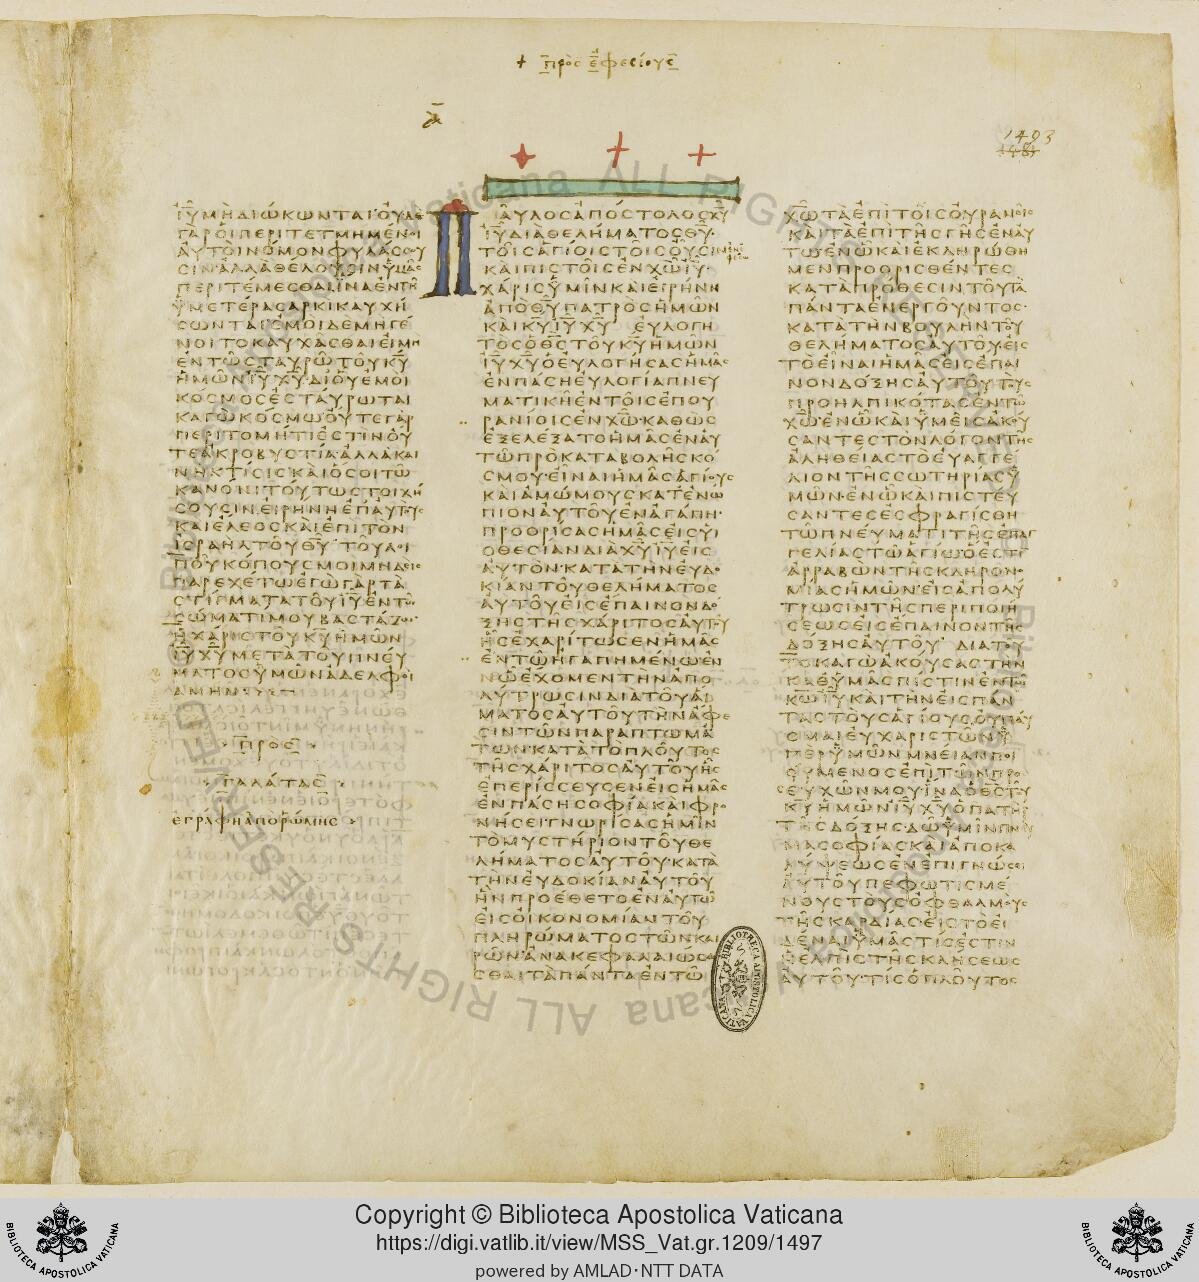 + πρὸς ἐφεσίους
α
1493
ΙΥ ΜΗ ΔΙΩΚΩΝΤΑΙ ΟΥΔΕ
ΓΑΡ ΟΙ ΠΕΡΙΤΕΤΜΗΜΕΝΟΙ
ΑΥΤΟΙ ΝΟΜΟΝ ΦΥΛΑΣΣΟΥ
ΣΙΝ ΑΛΛΑ ΘΕΛΟΥΣΙΝ ΥΜΑΣ
ΠΕΡΙΤΕΜΕΣΘΑΙ ΙΝΑ ΕΝ ΤΗ
ΥΜΕΤΕΡΑ ΣΑΡΚΙ ΚΑΥΧΗ
ΣΩΝΤΑΙ ΕΜΟΙ ΔΕ ΜΗ ΓΕ
ΝΟΙΤΟ ΚΑΥΧΑΣΘΑΙ ΕΙ ΜΗ
ΕΝ ΤΩ ΣΤΑΥΡΩ ΤΟΥ ΚΥ
ΗΜΩΝ ΙΥ ΧΥ ΔΙ ΟΥ ΕΜΟΙ
ΚΟΣΜΟΣ ΕΣΤΑΥΡΩΤΑΙ
ΚΑΓΩ ΚΟΣΜΩ ΟΥΤΕ ΓΑΡ
ΠΕΡΙΤΟΜΗ ΤΙ ΕΣΤΙΝ ΟΥ
ΤΕ ΑΚΡΟΒΥΣΤΙΑ ΑΛΛΑ ΚΑΙ
ΝΗ ΚΤΙΣΙΣ ΚΑΙ ΟΣΟΙ ΤΩ
ΚΑΝΟΝΙ ΤΟΥΤΩ ΣΤΟΙΧΗ
ΣΟΥΣΙΝ ΕΙΡΗΝΗ ΕΠ ΑΥΤΟΥΣ
ΚΑΙ ΕΛΕΟΣ ΚΑΙ ΕΠΙ ΤΟΝ
ΙΣΡΑΗΛ ΤΟΥ ΘΥ ΤΟΥ ΛΟΙ
ΠΟΥ ΚΟΠΟΥΣ ΜΟΙ ΜΗΔΕΙΣ
ΠΑΡΕΧΕΤΩ ΕΓΩ ΓΑΡ ΤΑ
ΣΤΙΓΜΑΤΑ ΤΟΥ ΙΥ ΕΝ ΤΩ
ΣΩΜΑΤΙ ΜΟΥ ΒΑΣΤΑΖΩ
Η ΧΑΡΙΣ ΤΟΥ ΚΥ ΗΜΩΝ
ΙΥ ΧΥ ΜΕΤΑ ΤΟΥ ΠΝΕΥ
ΜΑΤΟΣ ΥΜΩΝ ΑΔΕΛΦΟΙ
ΑΜΗΝ
ΠΡΟΣ
ΓΑΛΑΤΑΣ
ΕΓΡΑΦΗ ΑΠΟ ΡΩΜΗΣ
ΠΑΥΛΟΣ ΑΠΟΣΤΟΛΟΣ ΧΥ
ΙΥ ΔΙΑ ΘΕΛΗΜΑΤΟΣ ΘΥ
ΤΟΙΣ ΑΓΙΟΙΣ ΤΟΙΣ ΟΥΣΙΝ ἐν ἐφέσω
ΚΑΙ ΠΙΣΤΟΙΣ ΕΝ ΧΩ ΙΥ
ΧΑΡΙΣ ΥΜΙΝ ΚΑΙ ΕΙΡΗΝΗ
ΑΠΟ ΘΥ ΠΑΤΡΟΣ ΗΜΩΝ
ΚΑΙ ΚΥ ΙΥ ΧΥ ΕΥΛΟΓΗ
ΤΟΣ Ο ΘΣ ΤΟΥ ΚΥ ΗΜΩΝ
ΙΥ ΧΥ Ο ΕΥΛΟΓΗΣΑΣ ΗΜΑΣ
ΕΝ ΠΑΣΗ ΕΥΛΟΓΙΑ ΠΝΕΥ
ΜΑΤΙΚΗ ΕΝ ΤΟΙΣ ΕΠΟΥ
ΡΑΝΙΟΙΣ ΕΝ ΧΩ ΚΑΘΩΣ
ΕΞΕΛΕΞΑΤΟ ΗΜΑΣ ΕΝ ΑΥ
ΤΩ ΠΡΟ ΚΑΤΑΒΟΛΗΣ ΚΟ
ΣΜΟΥ ΕΙΝΑΙ ΗΜΑΣ ΑΓΙΟΥΣ
ΚΑΙ ΑΜΩΜΟΥΣ ΚΑΤΕΝΩ
ΠΙΟΝ ΑΥΤΟΥ ΕΝ ΑΓΑΠΗ
ΠΡΟΟΡΙΣΑΣ ΗΜΑΣ ΕΙΣ ΥΙ
ΟΘΕΣΙΑΝ ΔΙΑ ΧΥ ΙΥ ΕΙΣ
ΑΥΤΟΝ ΚΑΤΑ ΤΗΝ ΕΥΔΟ
ΚΙΑΝ ΤΟΥ ΘΕΛΗΜΑΤΟΣ
ΑΥΤΟΥ ΕΙΣ ΕΠΑΙΝΟΝ ΔΟ
ΞΗΣ ΤΗΣ ΧΑΡΙΤΟΣ ΑΥΤΟΥ
ΗΣ ΕΧΑΡΙΤΩΣΕΝ ΗΜΑΣ
ΕΝ ΤΩ ΗΓΑΠΗΜΕΝΩ ΕΝ
Ω ΕΧΟΜΕΝ ΤΗΝ ΑΠΟ
ΛΥΤΡΩΣΙΝ ΔΙΑ ΤΟΥ ΑΙ
ΜΑΤΟΣ ΑΥΤΟΥ ΤΗΝ ΑΦΕ
ΣΙΝ ΤΩΝ ΠΑΡΑΠΤΩΜΑ
ΤΩΝ ΚΑΤΑ ΤΟ ΠΛΟΥΤΟΣ
ΤΗΣ ΧΑΡΙΤΟΣ ΑΥΤΟΥ ΗΣ
ΕΠΕΡΙΣΣΕΥΣΕΝ ΕΙΣ ΗΜΑΣ
ΕΝ ΠΑΣΗ ΣΟΦΙΑ ΚΑΙ ΦΡΟ
ΝΗΣΕΙ ΓΝΩΡΙΣΑΣ ΗΜΙΝ
ΤΟ ΜΥΣΤΗΡΙΟΝ ΤΟΥ ΘΕ
ΛΗΜΑΤΟΣ ΑΥΤΟΥ ΚΑΤΑ
ΤΗΝ ΕΥΔΟΚΙΑΝ ΑΥΤΟΥ
ΗΝ ΠΡΟΕΘΕΤΟ ΕΝ ΑΥΤΩ
ΕΙΣ ΟΙΚΟΝΟΜΙΑΝ ΤΟΥ
ΠΛΗΡΩΜΑΤΟΣ ΤΩΝ ΚΑΙ
ΡΩΝ ΑΝΑΚΕΦΑΛΑΙΩΣΑ
ΣΘΑΙ ΤΑ ΠΑΝΤΑ ΕΝ ΤΩ
ΧΩ ΤΑ ΕΠΙ ΤΟΙΣ ΟΥΡΑΝΟΙΣ
ΚΑΙ ΤΑ ΕΠΙ ΤΗΣ ΓΗΣ ΕΝ ΑΥ
ΤΩ ΕΝ Ω ΚΑΙ ΕΚΛΗΡΩΘΗ
ΜΕΝ ΠΡΟΟΡΙΣΘΕΝΤΕΣ
ΚΑΤΑ ΠΡΟΘΕΣΙΝ ΤΟΥ ΤΑ
ΠΑΝΤΑ ΕΝΕΡΓΟΥΝΤΟΣ
ΚΑΤΑ ΤΗΝ ΒΟΥΛΗΝ ΤΟΥ
ΘΕΛΗΜΑΤΟΣ ΑΥΤΟΥ ΕΙΣ
ΤΟ ΕΙΝΑΙ ΗΜΑΣ ΕΙΣ ΕΠΑΙ
ΝΟΝ ΔΟΞΗΣ ΑΥΤΟΥ ΤΟΥΣ
ΠΡΟΗΛΠΙΚΟΤΑΣ ΕΝ ΤΩ
ΧΩ ΕΝ Ω ΚΑΙ ΥΜΕΙΣ ΑΚΟΥ
ΣΑΝΤΕΣ ΤΟΝ ΛΟΓΟΝ ΤΗΣ
ΑΛΗΘΕΙΑΣ ΤΟ ΕΥΑΓΓΕ
ΛΙΟΝ ΤΗΣ ΣΩΤΗΡΙΑΣ Υ
ΜΩΝ ΕΝ Ω ΚΑΙ ΠΙΣΤΕΥ
ΣΑΝΤΕΣ ΕΣΦΡΑΓΙΣΘΗ
ΤΩ ΠΝΕΥΜΑΤΙ ΤΗΣ ΕΠΑΓ
ΓΕΛΙΑΣ ΤΩ ΑΓΙΩ Ο ΕΣΤΙ
ΑΡΡΑΒΩΝ ΤΗΣ ΚΛΗΡΟΝΟ
ΜΙΑΣ ΗΜΩΝ ΕΙΣ ΑΠΟΛΥ
ΤΡΩΣΙΝ ΤΗΣ ΠΕΡΙΠΟΙΗ
ΣΕΩΣ ΕΙΣ ΕΠΑΙΝΟΝ ΤΗΣ
ΔΟΞΗΣ ΑΥΤΟΥ ΔΙΑ ΤΟΥ
ΤΟ ΚΑΓΩ ΑΚΟΥΣΑΣ ΤΗΝ
ΚΑΘ ΥΜΑΣ ΠΙΣΤΙΝ ΕΝ ΤΩ
ΚΩ ΙΥ ΚΑΙ ΤΗΝ ΕΙΣ ΠΑΝ
ΤΑΣ ΤΟΥΣ ΑΓΙΟΥΣ ΟΥ ΠΑΥ
ΟΜΑΙ ΕΥΧΑΡΙΣΤΩΝ Υ
ΠΕΡ ΥΜΩΝ ΜΝΕΙΑΝ ΠΟΙ
ΟΥΜΕΝΟΣ ΕΠΙ ΤΩΝ ΠΡΟ
ΣΕΥΧΩΝ ΜΟΥ ΙΝΑ Ο ΘΣ ΤΟΥ
ΚΥ ΗΜΩΝ ΙΥ ΧΥ Ο ΠΑΤΗΡ
ΤΗΣ ΔΟΞΗΣ ΔΩ ΥΜΙΝ ΠΝΕΥ
ΜΑ ΣΟΦΙΑΣ ΚΑΙ ΑΠΟΚΑ
ΛΥΨΕΩΣ ΕΝ ΕΠΙΓΝΩΣΕΙ
ΑΥΤΟΥ ΠΕΦΩΤΙΣΜΕ
ΝΟΥΣ ΤΟΥΣ ΟΦΘΑΛΜΟΥΣ
ΤΗΣ ΚΑΡΔΙΑΣ ΕΙΣ ΤΟ ΕΙ
ΔΕΝΑΙ ΥΜΑΣ ΤΙΣ ΕΣΤΙΝ
Η ΕΛΠΙΣ ΤΗΣ ΚΛΗΣΕΩΣ
ΑΥΤΟΥ ΤΙΣ Ο ΠΛΟΥΤΟΣ
BIBLIOTHECA APOSTOLICA VATICANA
Copyright © Biblioteca Apostolica Vaticana
https://digi.vatlib.it/view/MSS_Vat.gr.1209/1497
powered by AMLAD·NTT DATA